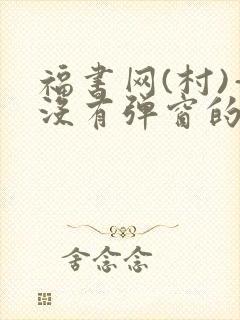 福书网(村)-
没有弹窗的
舍念念